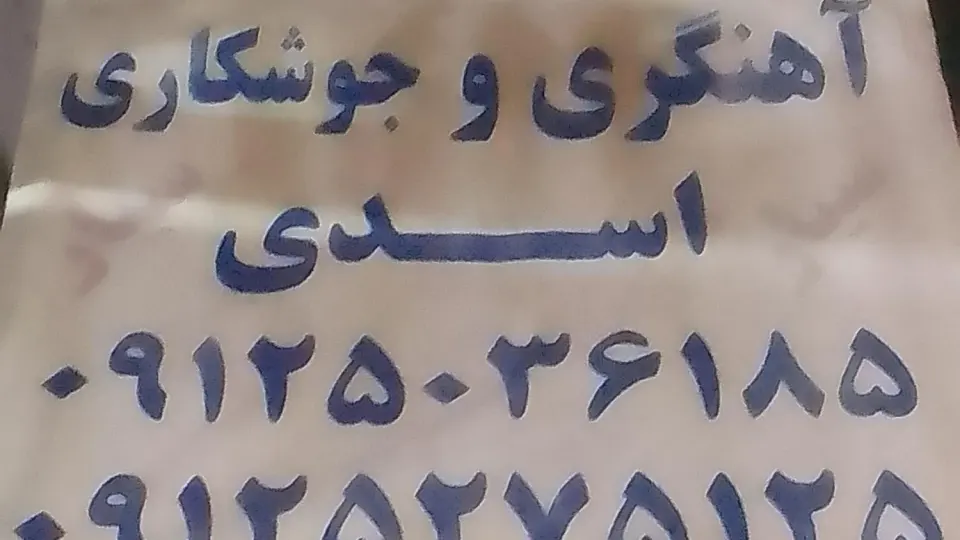 آهنگری و جوشکاری
اسدی
۰۹۱۲۵۰۳۶۱۸۵
۰۹۱۲۵۲۷۵۱۲۵